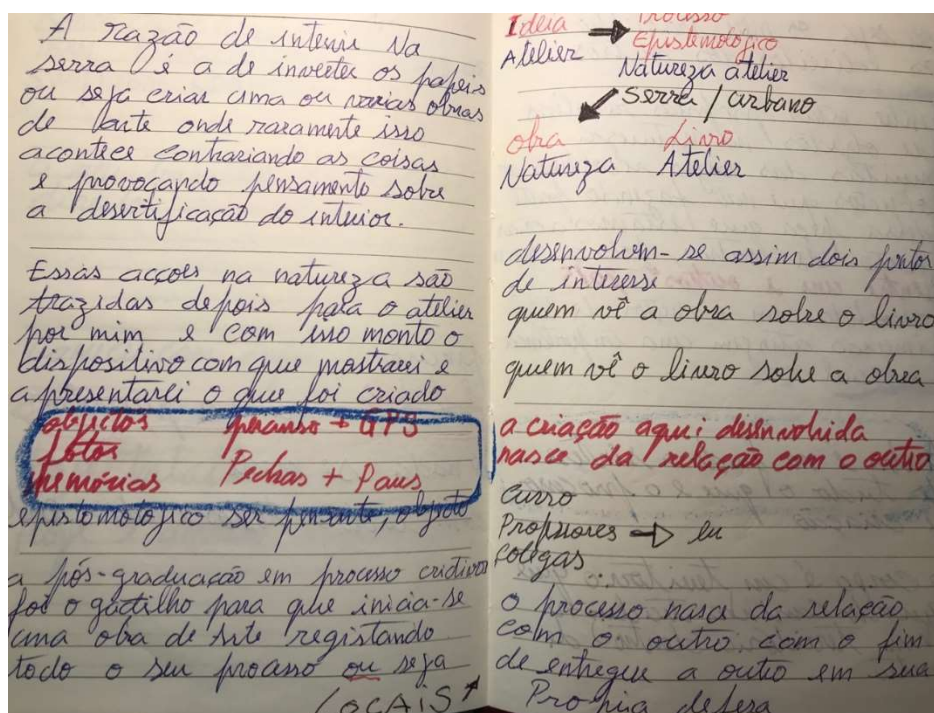 A razão de intervir na
serra é a de inverter os papeis
ou seja criar uma ou varias obras
de arte onde raramente isso
acontece contrariando as coisas
e provocando pensamento sobre
a desertificação do interior.
Essas acções na natureza são
trazidas depois para o atelier
por mim e com isso monto o
dispositivo com que mostrarei e
apresentarei o que foi criado
objectos percurso + GPS
fotos
memórias Pedras + Paus
epistomológico ser pensante, objecto
a pós-graduação em processo criativo
foi o gatilho para que inicia-se
uma obra de arte registando
todo o seu processo ou seja
LOCAIS
Ideia Processo
Epistemológico
Atelier
Natureza atelier
Serra / urbano
obra Livro
Natureza Atelier
desenvolvem-se assim dois pontos
de interesse
quem vê a obra sobre o livro
quem vê o livro sobre a obra
a criação aqui desenvolvida
nasce da relação com o outro
Curso
Professores → eu
colegas
O processo nasce da relação
com o outro, com o fim
de entregue a outro em sua
Propria defesa